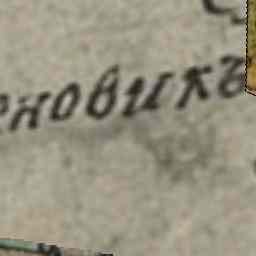 еновикъ